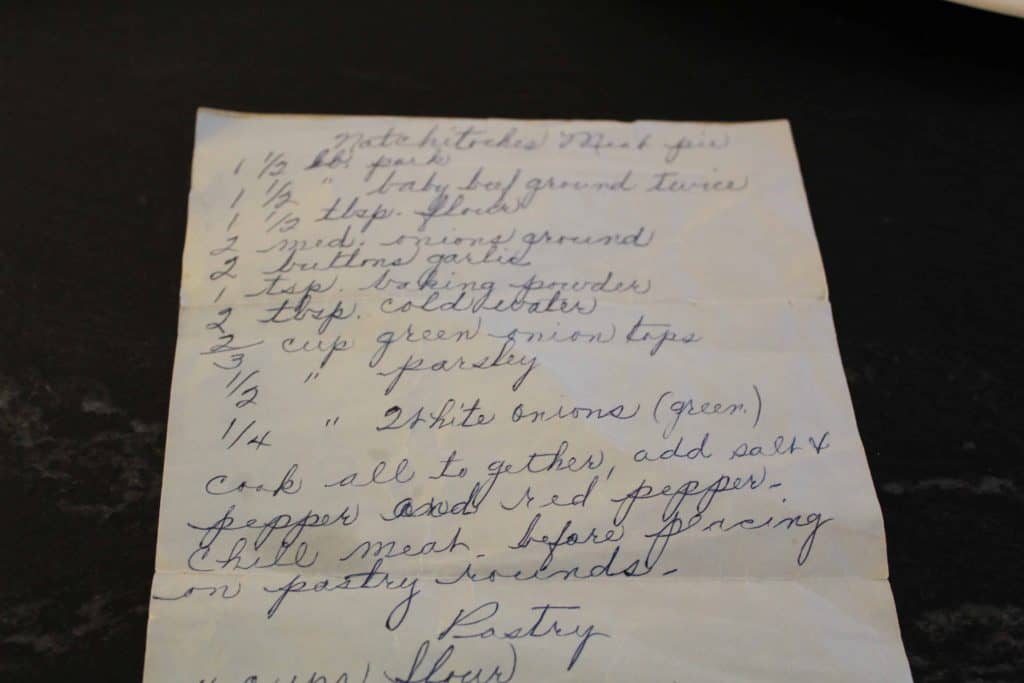 Natchitoches Meat pie
1 1/2 lb. pork
1 1/2 " baby beef ground twice
1 1/2 tbsp. flour
2 med. onions ground
2 buttons garlic
1 tsp. baking powder
2 tbsp. cold water
2/3 cup green onion tops
1/2 " parsley
1/4 " White onions (green)
cook all to gether, add salt &
pepper and red pepper-
chill meat- before piecing
on pastry rounds-
Pastry
cups flour